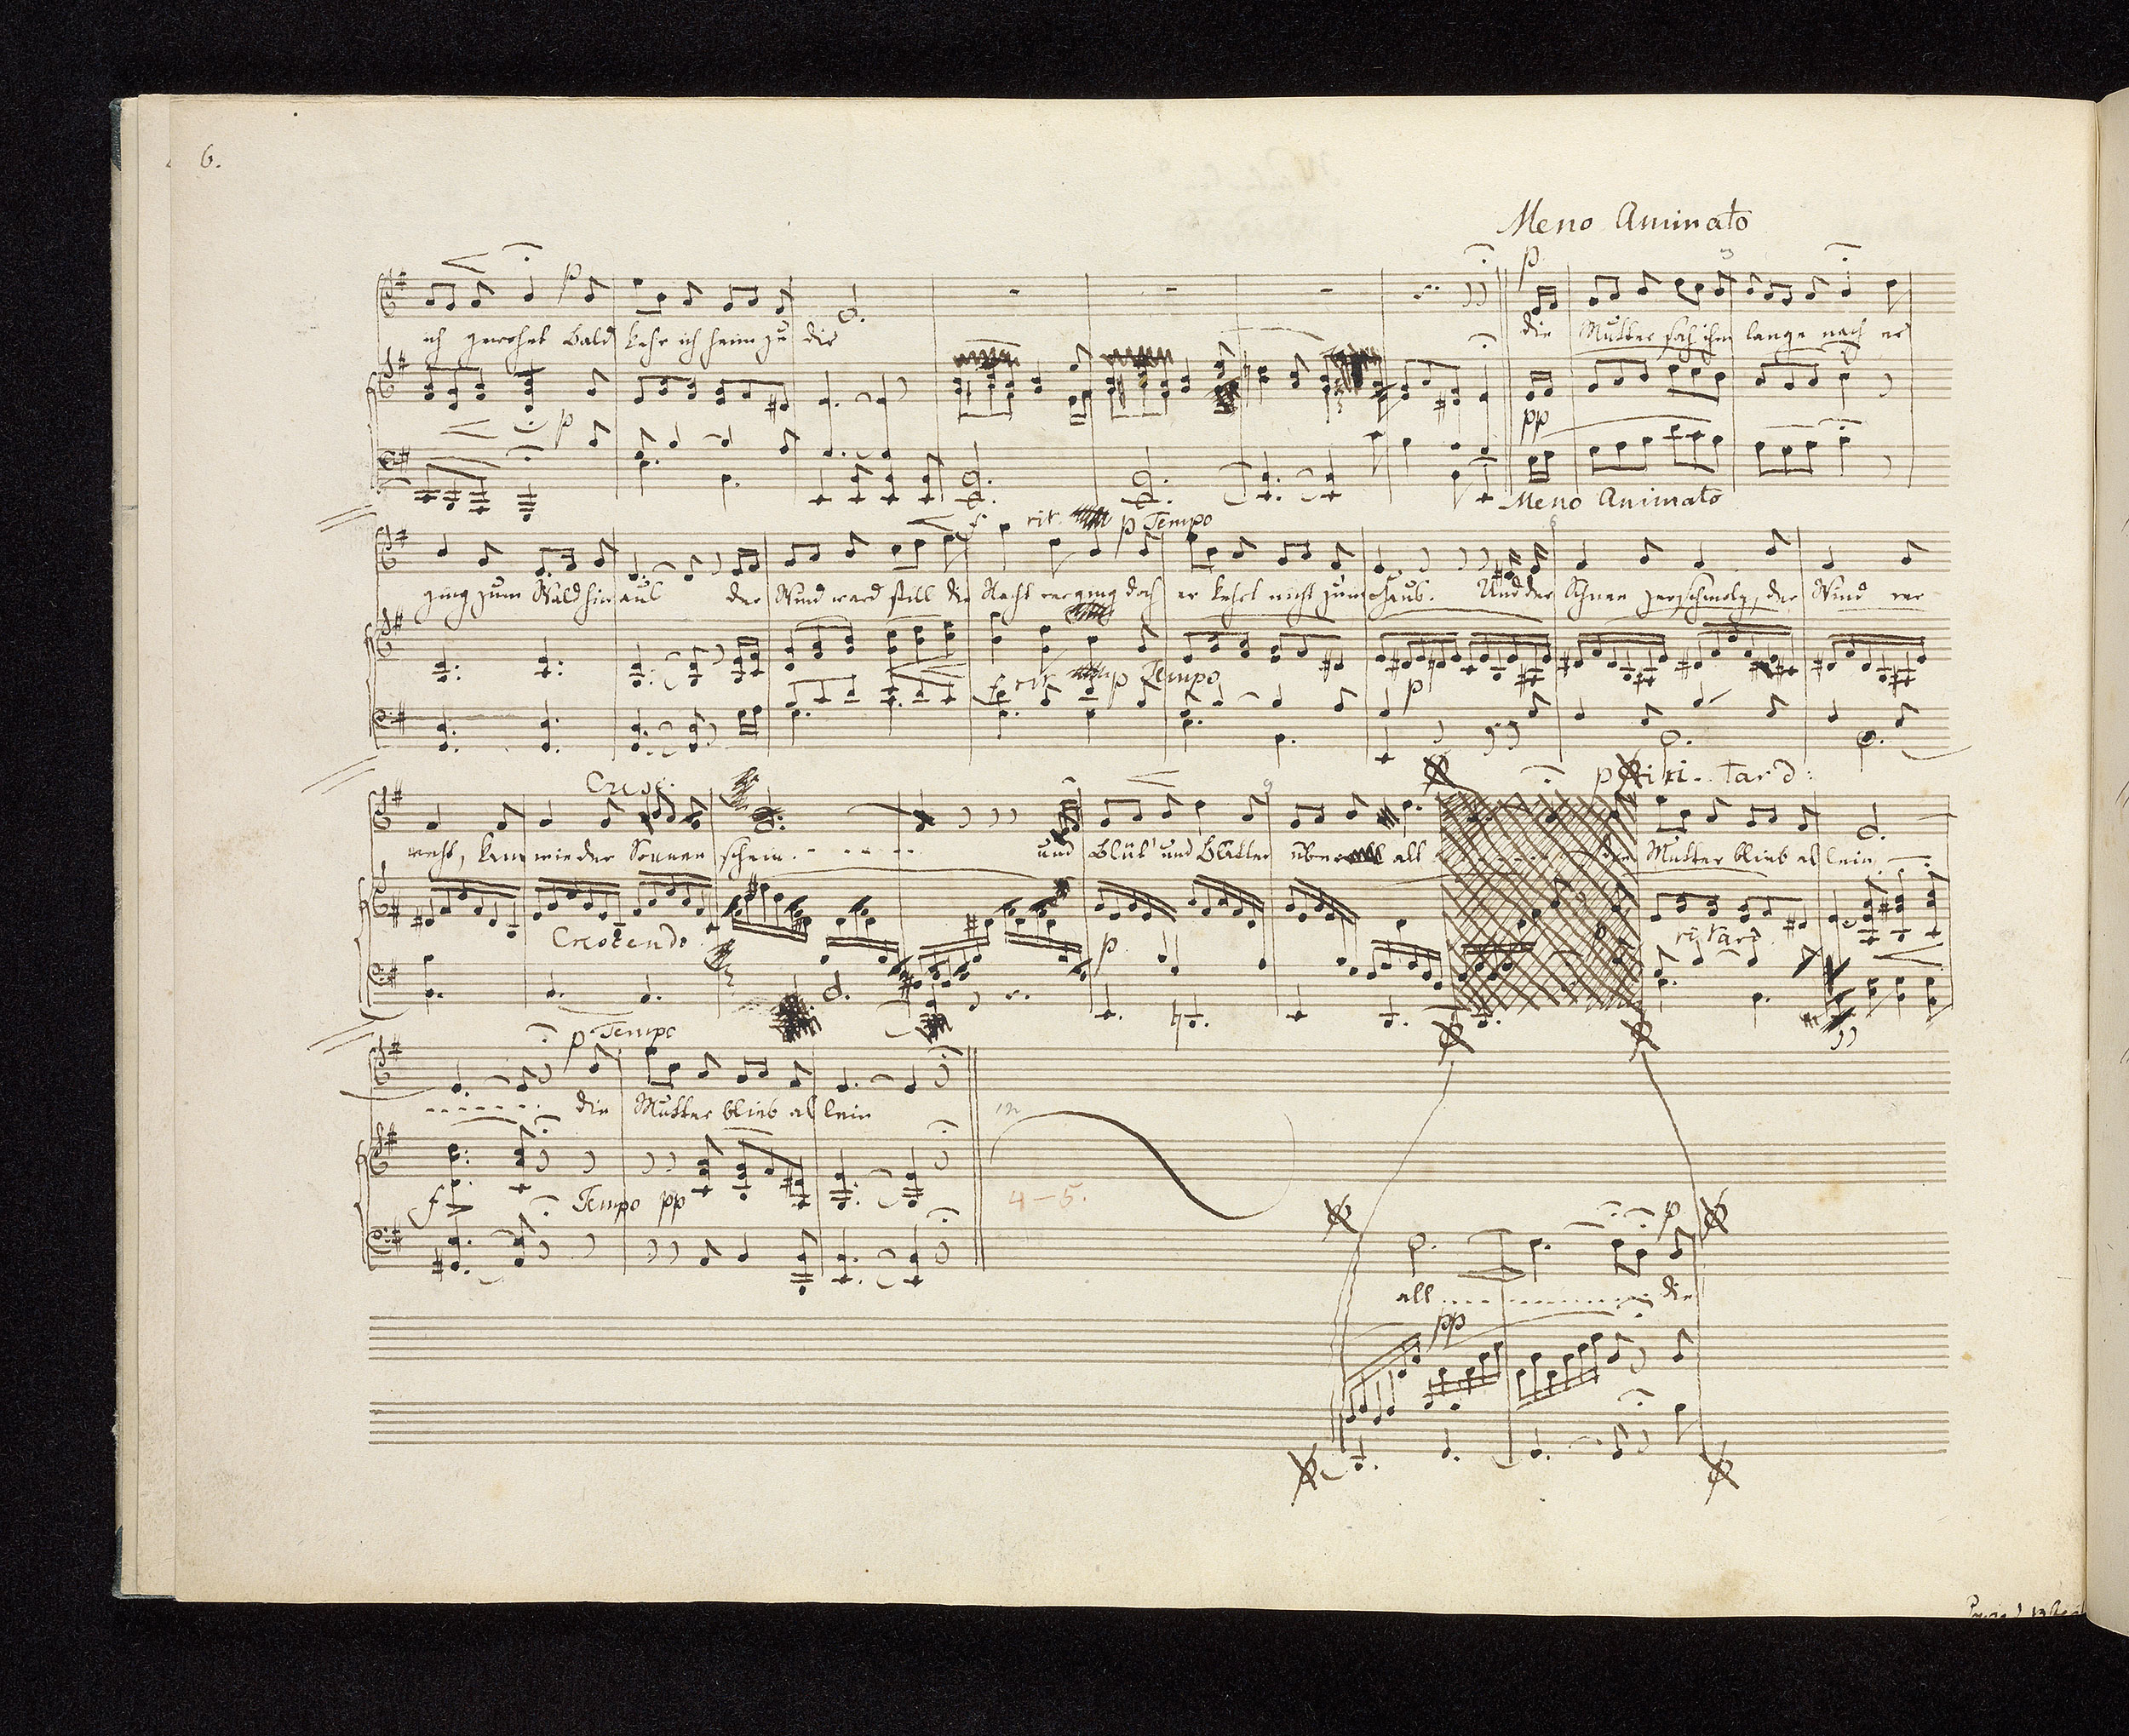 6.
Meno Animato
p
p
ich gewohnt bald kehr ich heim zu dir
die Mutter sah ihm lange nach er
p
pp
Meno Animato
f rit. p Tempo
ging zum Wald hinaus der Wind ward still die Nacht verging doch er kehrt nicht zum Haus. Und der Schnee zerschmolz, der Wind ver
f rit p Tempo
p
Cresc:
p ri.. tard:
weht, kam wieder Sonnen schein. und Blüt' und Blätter über all die Mutter blieb al lein
Crescendo
p
p
ritard
p Tempo
die Mutter blieb al lein
f Tempo pp
4–5.
p
all die
pp